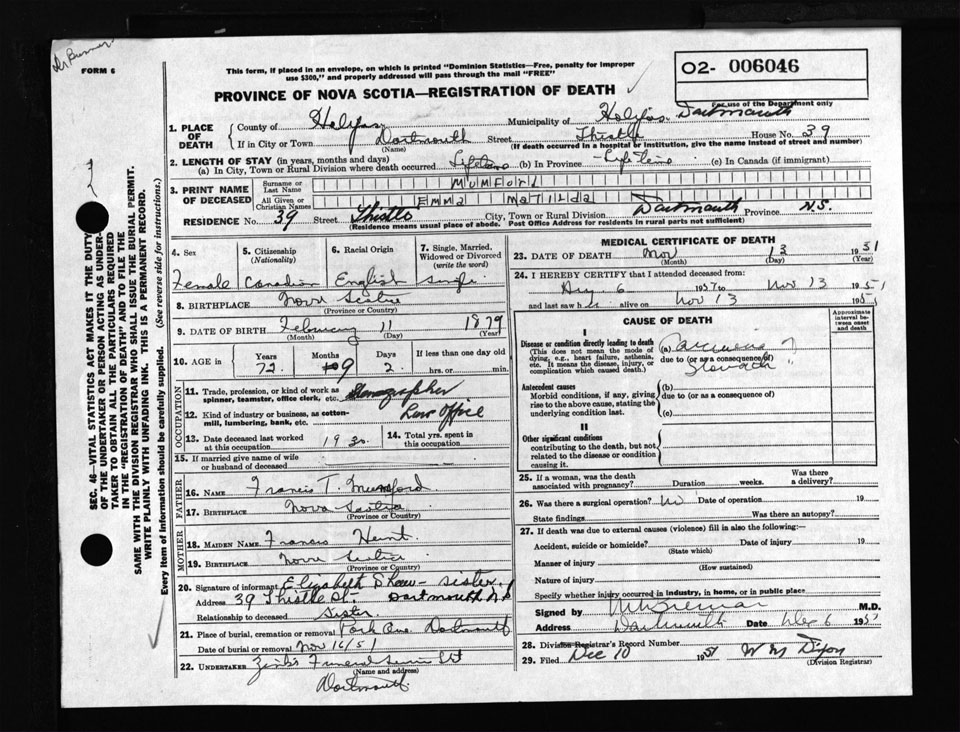 FORM 6
This form, if placed in an envelope, on which is printed "Dominion Statistics—Free, penalty for improper
use $300," and properly addressed will pass through the mail "FREE"
O2- 006046
For use of the Department only
PROVINCE OF NOVA SCOTIA—REGISTRATION OF DEATH
1. PLACE OF DEATH
County of Halifax Municipality of Halifax Dartmouth
If in City or Town Dartmouth (Name) Street Thistle House No. 39
(If death occurred in a hospital or institution, give the name instead of street and number)
2. LENGTH OF STAY (in years, months and days)
(a) In City, Town or Rural Division where death occurred Lifetime (b) In Province Life Time (c) In Canada (if immigrant)
3. PRINT NAME OF DECEASED
Surname or Last Name MUMFORD
All Given or Christian Names EMMA MATILDA
RESIDENCE No. 39 Street Thistle City, Town or Rural Division Dartmouth Province N.S.
(Residence means usual place of abode. Post Office Address for residents in rural parts not sufficient)
4. Sex
Female
5. Citizenship (Nationality)
Canadian
6. Racial Origin
English
7. Single, Married, Widowed or Divorced (write the word)
Single
8. BIRTHPLACE Nova Scotia
(Province or Country)
9. DATE OF BIRTH February 11 1879
(Month) (Day) (Year)
10. AGE in Years 72 Months 9 Days 2 If less than one day old
hrs. or min.
OCCUPATION
11. Trade, profession, or kind of work as spinner, teamster, office clerk, etc. Stenographer
12. Kind of industry or business, as cotton-mill, lumbering, bank, etc. Law Office
13. Date deceased last worked at this occupation 1930
14. Total yrs. spent in this occupation
15. If married give name of wife or husband of deceased
FATHER
16. NAME Francis T. Mumford
17. BIRTHPLACE Nova Scotia
(Province or Country)
MOTHER
18. MAIDEN NAME Francis Hunt
19. BIRTHPLACE Nova Scotia
(Province or Country)
20. Signature of informant Elizabeth Shaw - sister
Address 39 Thistle St. Dartmouth N.S.
Relationship to deceased Sister
21. Place of burial, cremation or removal Park Ave. Dartmouth
Date of burial or removal Nov 16/51
22. UNDERTAKER Zink's Funeral Service Ltd
(Name and address)
Dartmouth
MEDICAL CERTIFICATE OF DEATH
23. DATE OF DEATH Nov 13 1951
(Month) (Day) (Year)
24. I HEREBY CERTIFY that I attended deceased from
Aug. 6 1951 to Nov 13 1951
and last saw her alive on Nov 13 1951
CAUSE OF DEATH
Approximate interval between onset and death
I
Disease or condition directly leading to death
(This does not mean the mode of dying, e.g., heart failure, asthenia, etc. It means the disease, injury, or complication which caused death.)
(a) Carcinoma of
due to (or as a consequence of)
Stomach
Antecedent causes
Morbid conditions, if any, giving rise to the above cause, stating the underlying condition last.
(b)
due to (or as a consequence of)
(c)
II
Other significant conditions
contributing to the death, but not related to the disease or condition causing it.
25. If a woman, was the death associated with pregnancy? Duration weeks. Was there a delivery?
26. Was there a surgical operation? No Date of operation 19
State findings Was there an autopsy?
27. If death was due to external causes (violence) fill in also the following:—
Accident, suicide or homicide? Date of injury 19
(State which)
Manner of injury
(How sustained)
Nature of injury
Specify whether injury occurred in industry, in home, or in public place
Signed by M.D.
Address Dartmouth Date Dec 6 1951
28. Division Registrar's Record Number
29. Filed Dec 10 1951 W M Dixon
(Division Registrar)
SEC. 46—VITAL STATISTICS ACT MAKES IT THE DUTY
OF THE UNDERTAKER OR PERSON ACTING AS UNDERTAKER
TO OBTAIN ALL THE PARTICULARS REQUIRED
IN THE "REGISTRATION OF DEATH" AND TO FILE THE
SAME WITH THE DIVISION REGISTRAR WHO SHALL ISSUE THE BURIAL PERMIT.
WRITE PLAINLY WITH UNFADING INK. THIS IS A PERMANENT RECORD.
Every item of information should be carefully supplied. (See reverse side for instructions.)